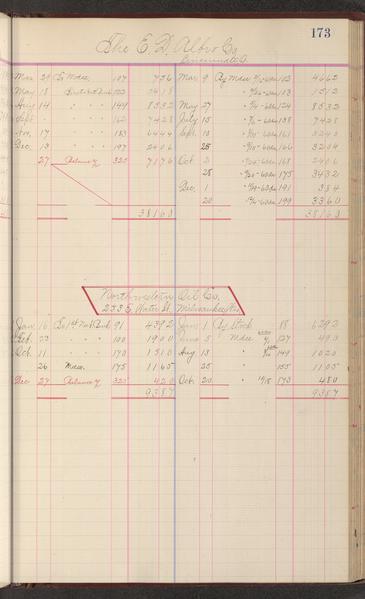 173
The E. D. Albro Co.
Cincinnati O.
Mar 29 To Mdse. 107 756 Mar 9 By Mdse 102 4662
May 18 122 2418 103 1512
Aug 14 " " " 144 8532 May 27 " 124 8532
Sept " " " 162 7428 July 15 " 138 7428
Nov. 17 " " " 183 6444 Sept. 10 " 161 3240
Dec. 13 " " " 197 2406 25 " 166 3204
27 Balance 320 7176 Oct 2 " 168 2406
25 " 175 3432
Dec. 1 " 191 384
20 " 199 3360
38163 38163
Northwestern Oil Co.
Water St. Milwaukee Wis
Jan 16 To 1st Natl Bank 91 4392 Jan 1 By Stock 18 6292
Feb. 23 " " " 100 1900 June 5 " Mdse 127 490
Oct. 11 " " " 170 1510 Aug 13 " 149 1020
26 Mdse. 175 1165 25 " 155 1105
Dec 27 Balance 320 420 Oct. 20 " 173 480
9387 9387